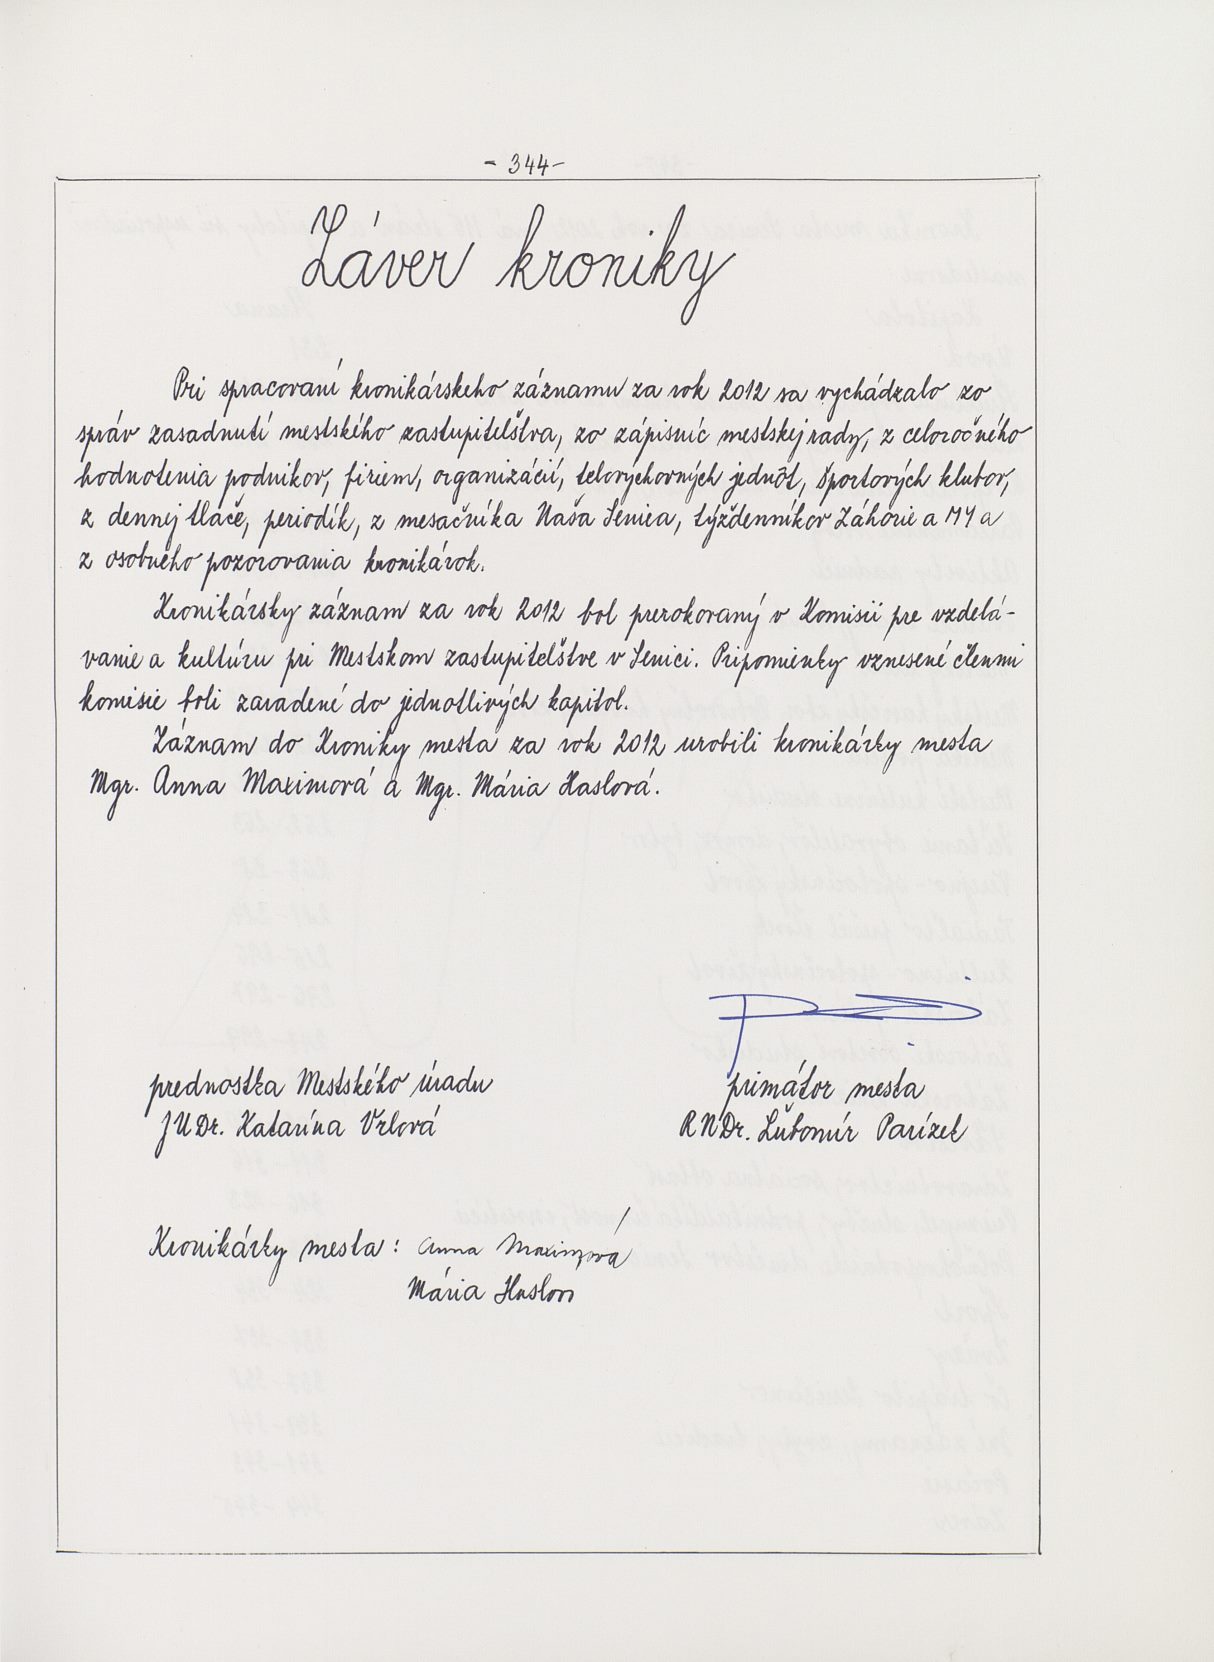 - 344 -
Záver kroniky
Pri spracovaní kronikárskeho záznamu za rok 2012 sa vychádzalo zo
správ zasadnutí mestského zastupiteľstva, zo zápisníc mestskej rady, z celoročného
hodnotenia podnikov, firiem, organizácií, telovýchovných jednôt, športových klubov,
z dennej tlače, periodík, z mesačníka Naša Senica, týždenníkov Záhorie a MY a
z osobného pozorovania kronikárok.
Kronikársky záznam za rok 2012 bol prerokovaný v Komisii pre vzdelá-
vanie a kultúru pri Mestskom zastupiteľstve v Senici. Pripomienky vznesené členmi
komisie boli zaradené do jednotlivých kapitol.
Záznam do Kroniky mesta za rok 2012 urobili kronikárky mesta
Mgr. Anna Maximová a Mgr. Mária Haslová.
prednostka Mestského úradu primátor mesta
JUDr. Katarína Vrlová RNDr. Ľubomír Parízek
Kronikárky mesta: Anna Maximová
Mária Haslov